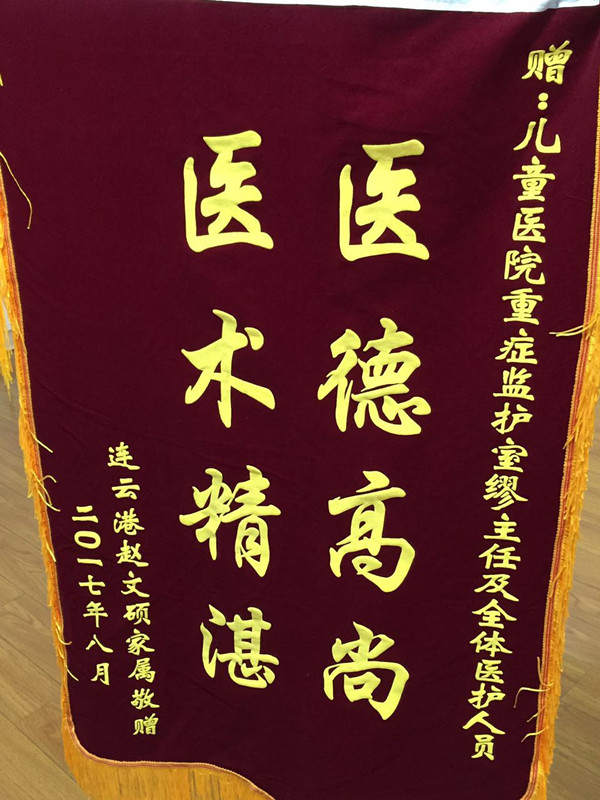 赠：儿童医院重症监护室缪主任及全体医护人员
医德高尚
医术精湛
连云港赵文硕家属敬赠
二〇一七年八月